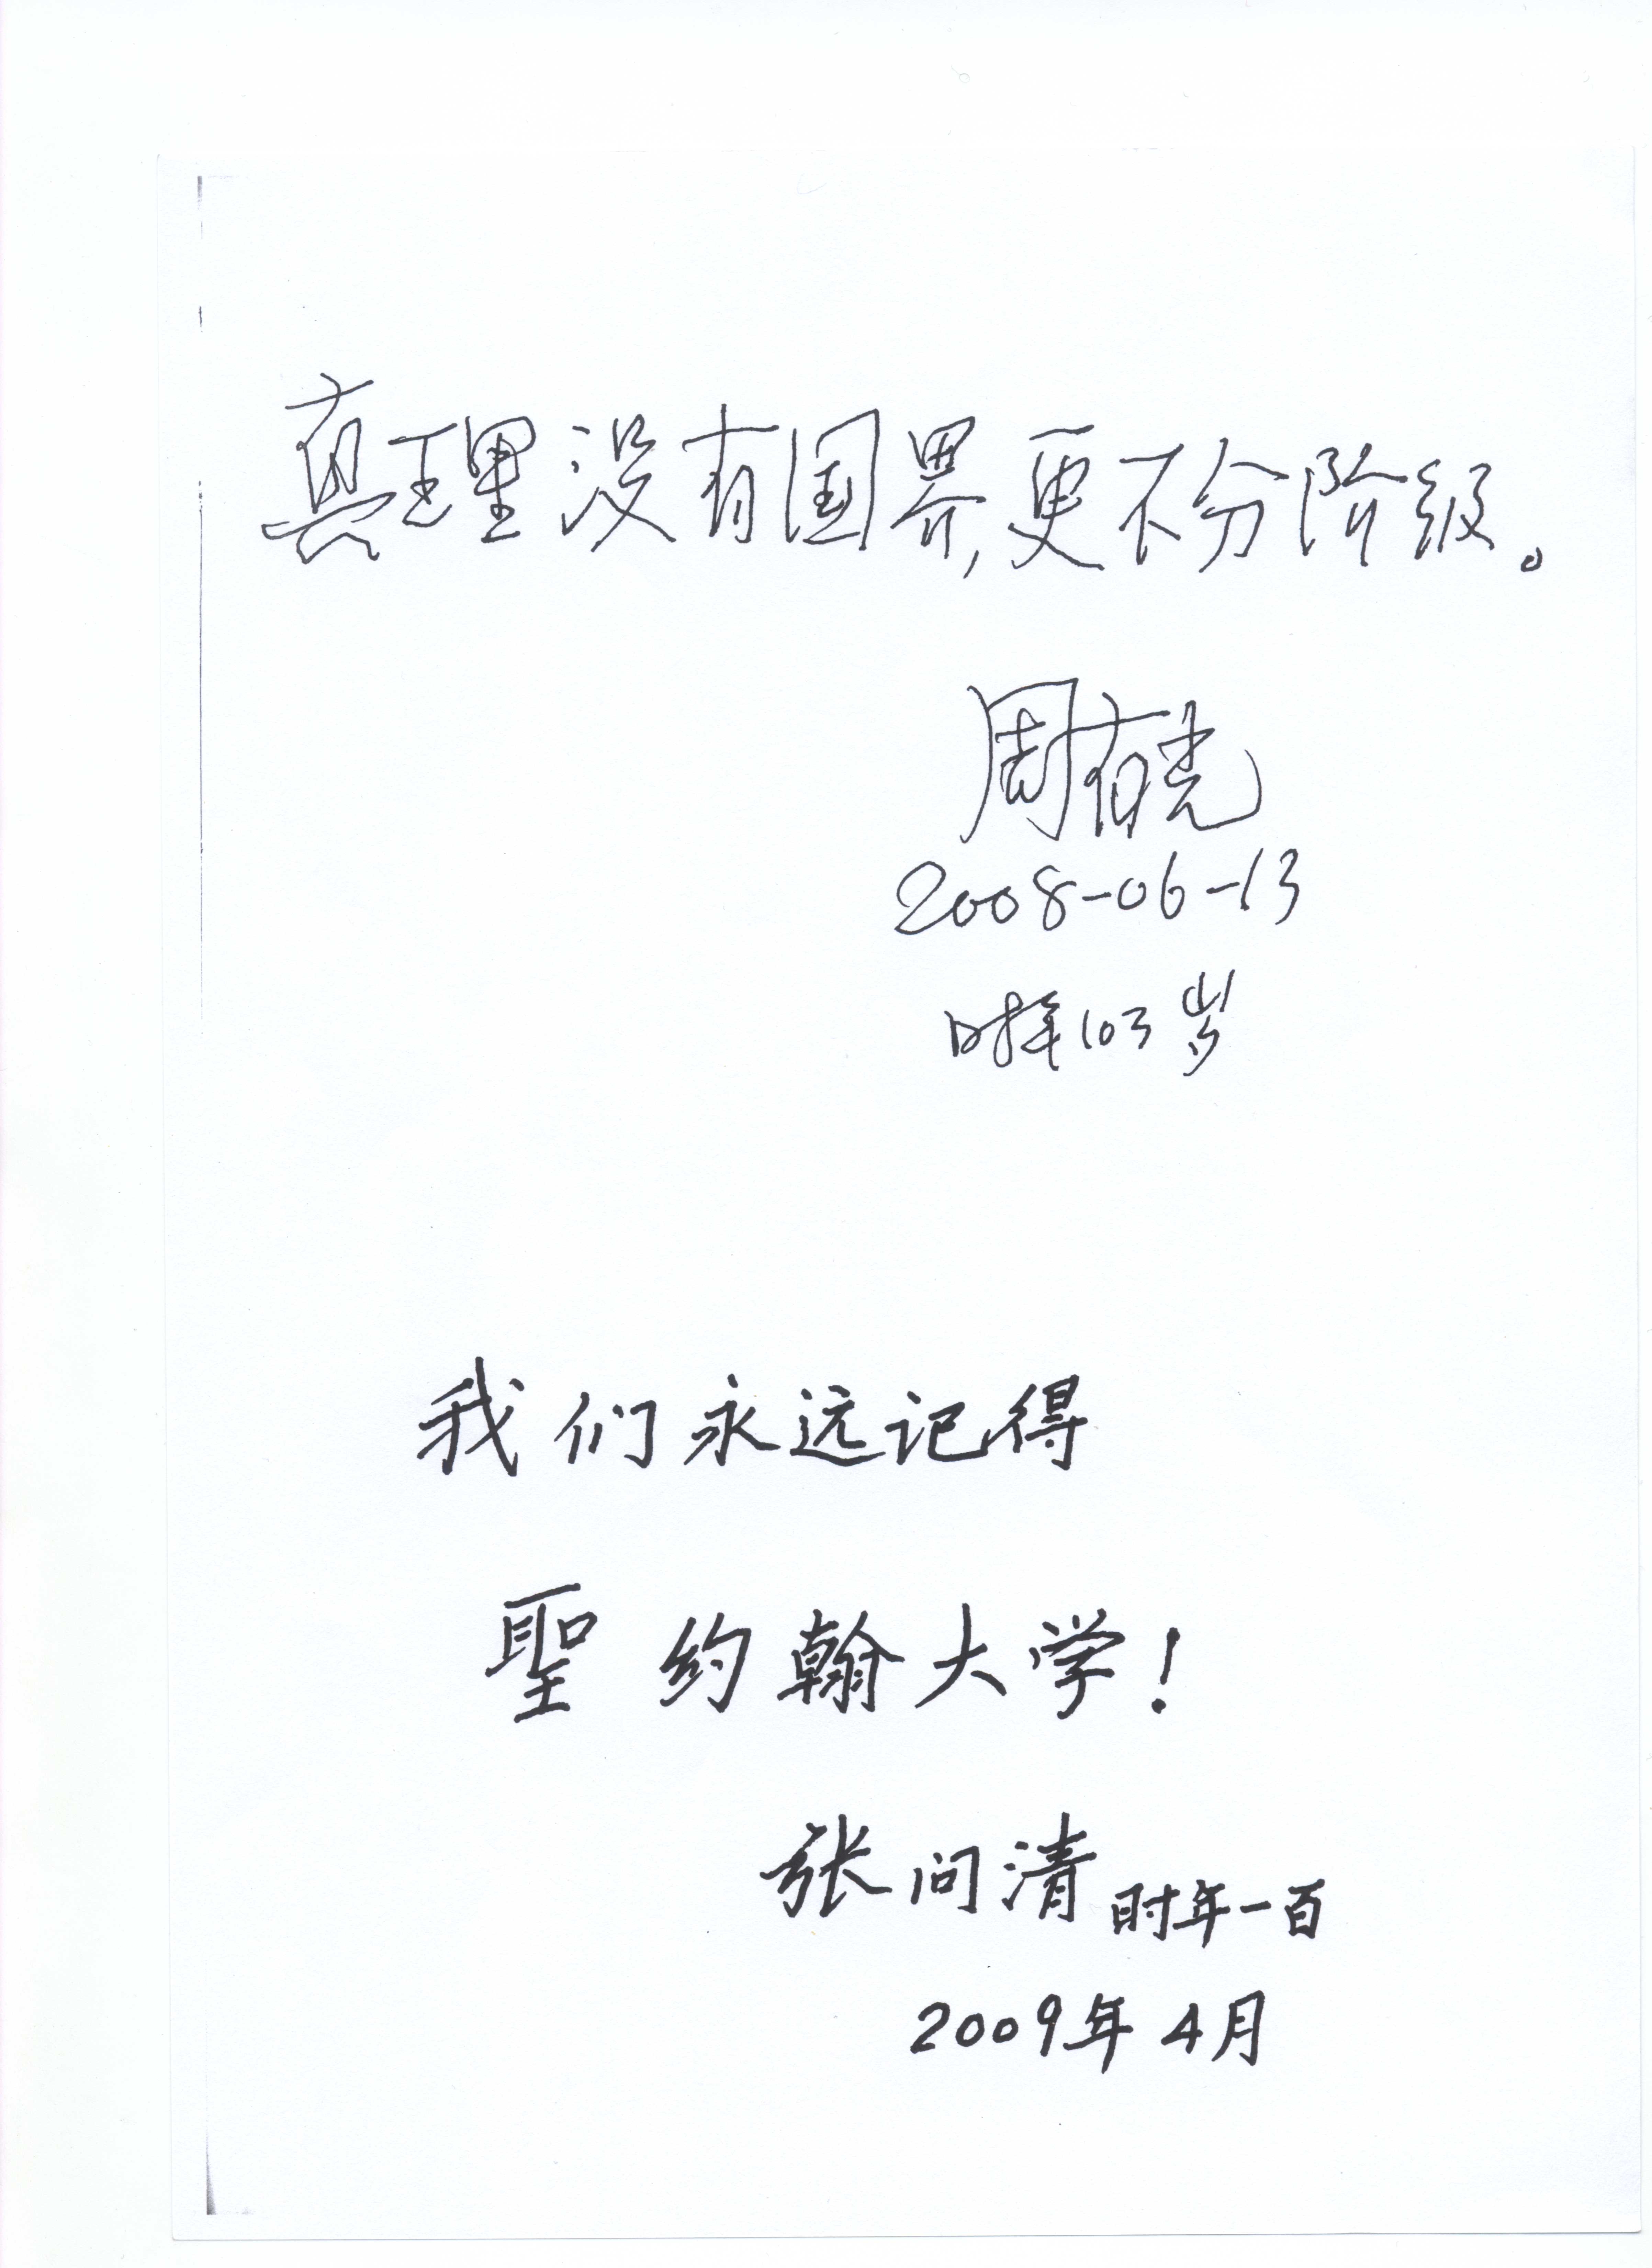 真理没有国界,更不分阶级。
周有光
2008-06-13
时年103岁
我们永远记得
聖约翰大学!
张问清 时年一百
2009年4月